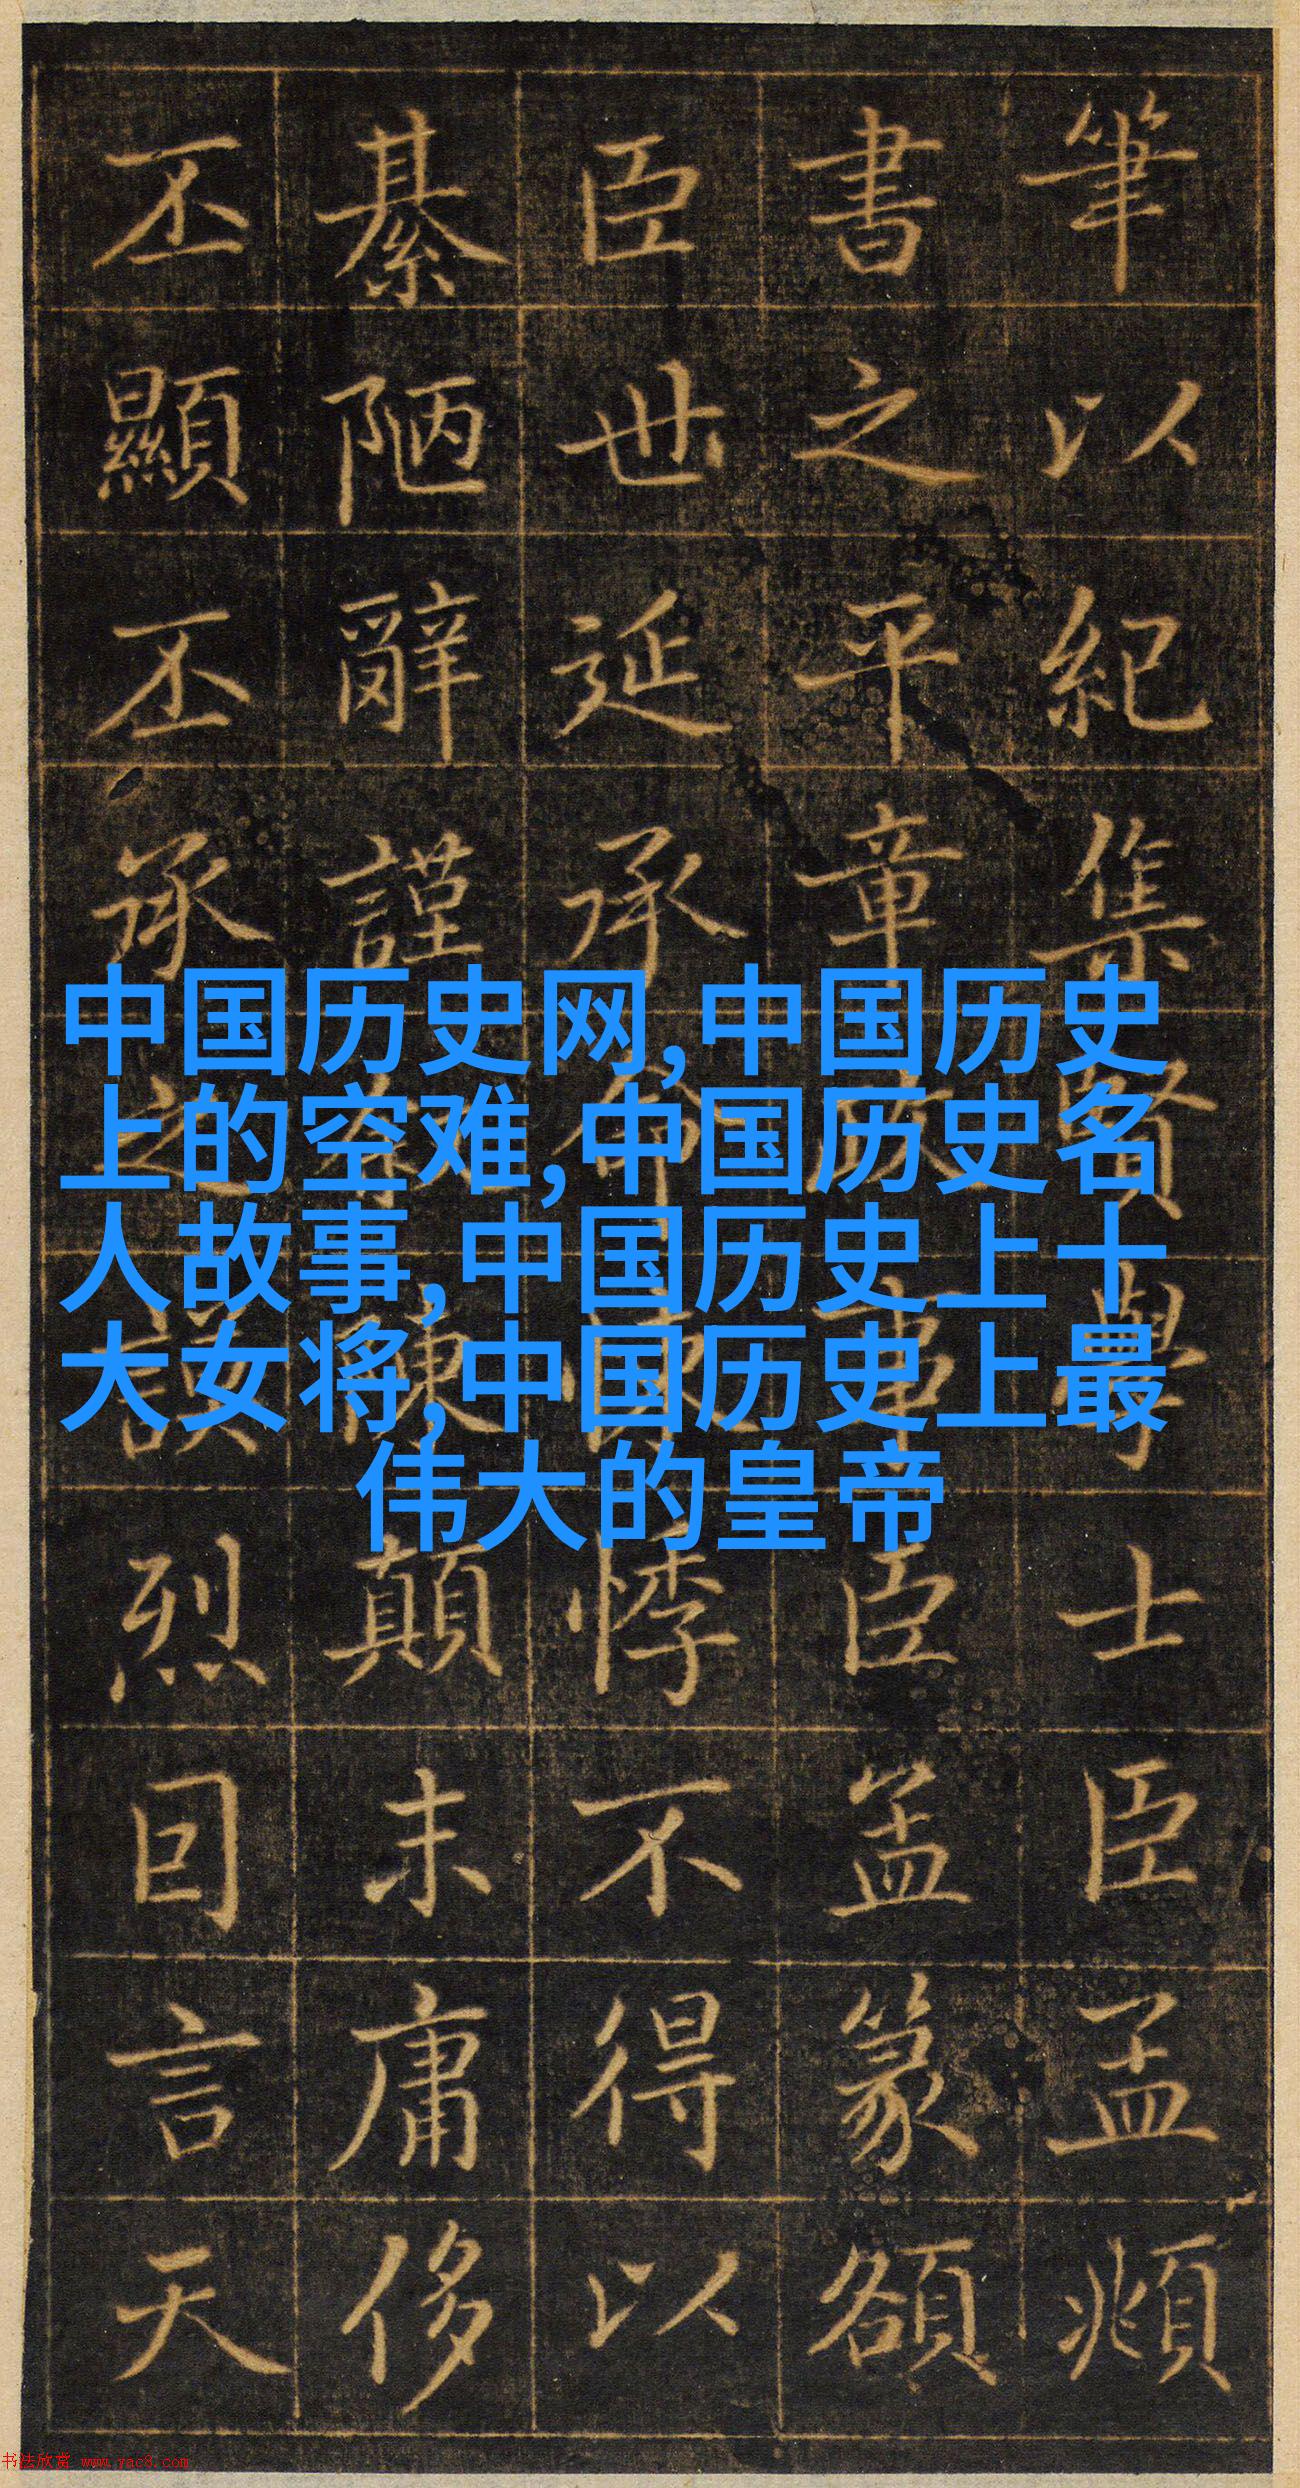 筆以紀集賢學士臣孟頫
書之平章政事臣篆額
臣世延承命悸不得以
綦陋辭謹顛末庸侈
丕顯丕承之謨烈囙言天
中国历史网,中国历史
上的空难,中国历史名
人故事,中国历史上十
大女将,中国历史上最
伟大的皇帝
书法欣赏 www.yac8.com